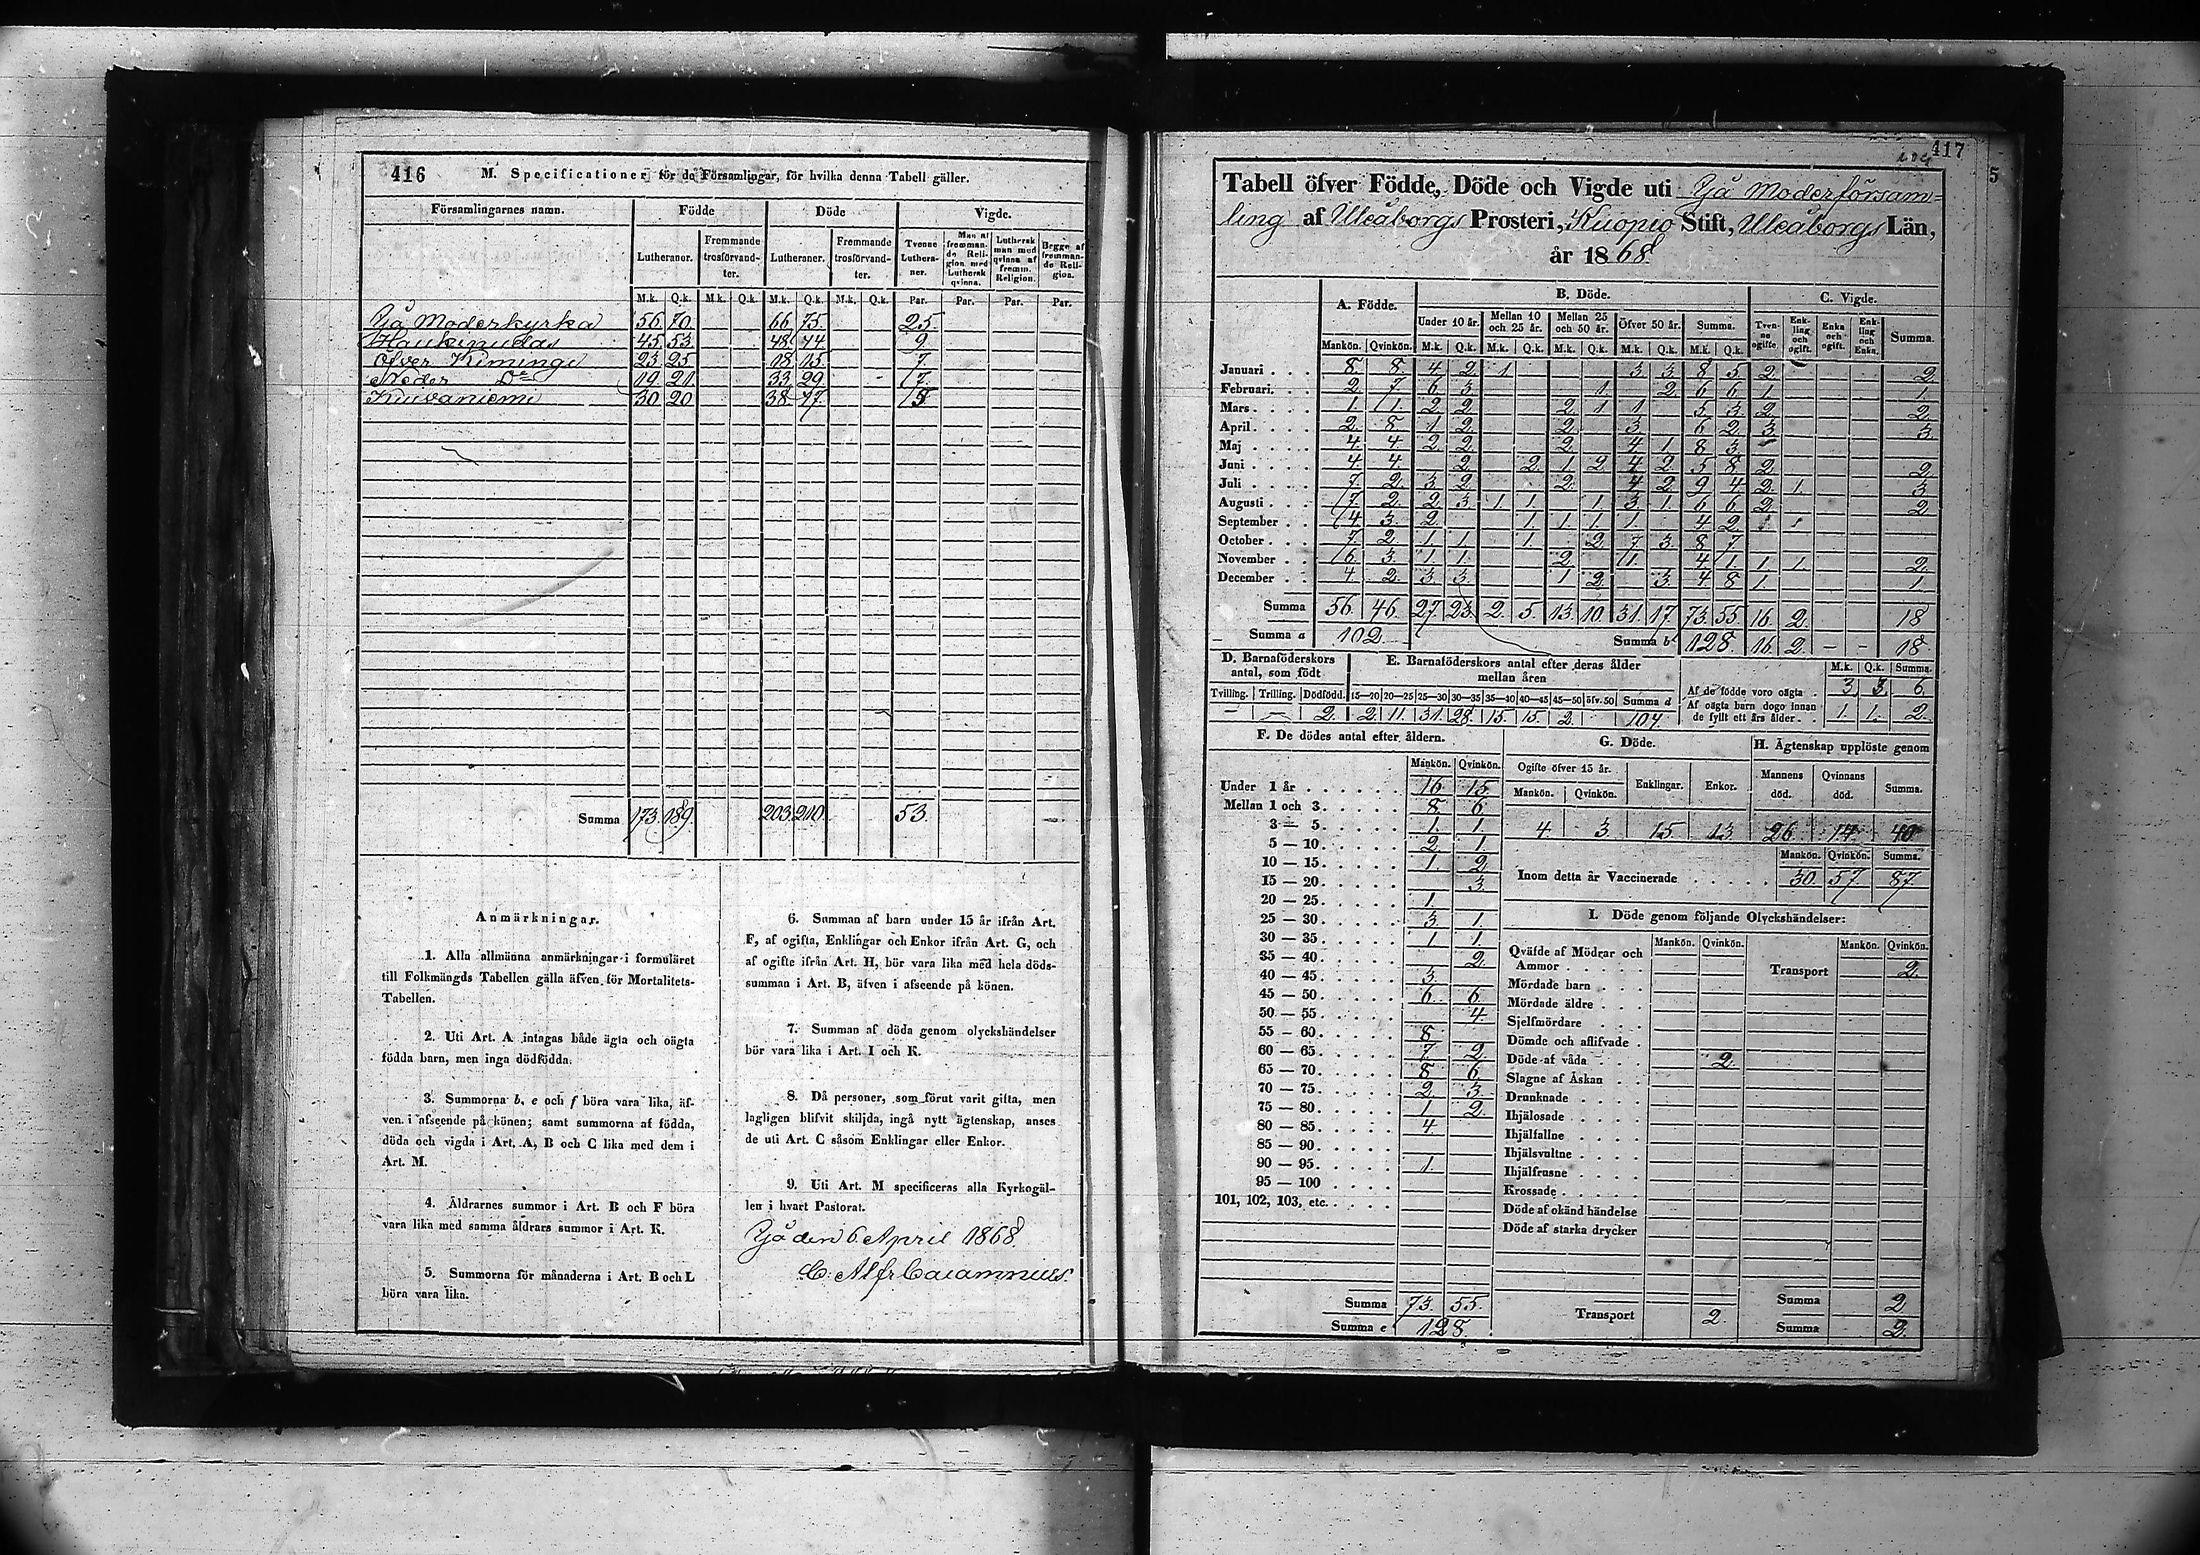 416 M. Specificationer för de Församlingar, för hvilka denna Tabell gäller.
Församlingarnes namn. Födde Döde Vigde.
Lutheraner. Fremmande trosförvandter. Lutheraner. Fremmande trosförvandter. Tvenne Lutheraner. Man af fremmande Religion med Luthersk qvinna. Luthersk man med qvinna af fremm. Religion. Begge af fremmande Religion.
M.k. Q.k. M.k. Q.k. M.k. Q.k. M.k. Q.k. Par. Par. Par. Par.
Ijå Moderkyrka 56. 70. 66. 75. 25.
Haukipudas 45. 53. 48. 44. 9.
Öfver Kiminge 23. 25. 18. 15. 7.
Neder D:o 19. 21. 33. 29. 7.
Kuivaniemi 30. 20. 38. 47. 5
Summa 173. 189. 203. 210. 53.
Anmärkningar.
1. Alla allmänna anmärkningar i formuläret
till Folkmängds Tabellen gälla äfven för Mortalitets-
Tabellen.
2. Uti Art. A intagas både ägta och oägta
födda barn, men inga dödfödda.
3. Summorna b, e och f böra vara lika, äf-
ven i afseende på könen; samt summorna af födda,
döda och vigda i Art. A, B och C lika med dem i
Art. M.
4. Äldrarnes summor i Art. B och F böra
vara lika med samma åldrars summor i Art. K.
5. Summorna för månaderna i Art. B och L
böra vara lika.
6. Summan af barn under 15 år ifrån Art.
F, af ogifta, Enklingar och Enkor ifrån Art. G, och
af ogifte ifrån Art. H, bör vara lika med hela döds-
summan i Art. B, äfven i afseende på könen.
7. Summan af döda genom olyckshändelser
bör vara lika i Art. I och K.
8. Då personer, som förut varit gifta, men
lagligen blifvit skiljda, ingå nytt ägtenskap, anses
de uti Art. C såsom Enklingar eller Enkor.
9. Uti Art. M specificeras alla Kyrkogäl-
len i hvart Pastorat.
Ijå den 6 April 1868.
417
Tabell öfver Födde, Döde och Vigde uti Ijå Moderförsam=
ling af Uleåborgs Prosteri, Kuopio Stift, Uleåborgs Län,
år 1868.
A. Födde. B. Döde. C. Vigde.
Under 10 år. Mellan 10 och 25 år. Mellan 25 och 50 år. Öfver 50 år. Summa. Tvenogifte. Enkling och ogift. Enka och ogift. Enkling och Enka. Summa.
Mankön. Qvinkön. M.k. Q.k. M.k. Q.k. M.k. Q.k. M.k. Q.k. M.k. Q.k.
Januari 8. 8. 4 2 1 3 3 8 5 2 2
Februari. 2 7 6 3 1 2 6 6 1 1
Mars 1. 1. 2 2 2 1 1 5 3 2 2
April 2 8 1 2 2 3 6 2 3 3
Maj 4 4 2 2 2 4 1 8 3
Juni 4 4. 2 2 1 2 4 2 5 8 2 2
Juli 7. 2. 3 2 2 4 2 9 4 2 1. 3
Augusti 7. 2 2 3 1 1 1 3 1 6 6 2 2
September 4 3 2 1 1 1 1 4 2
October 7. 2 1 1 1. 2 7 3 8 7
November 6. 3 1 1 2 1. 4 1. 1 1. 2
December 4. 2 3 3 1 2 3 4 8 1. 1.
Summa 56. 46. 27. 23. 2. 5. 13. 10. 31. 17. 73. 55. 16. 2. 18
Summa a 102. Summa b 128. 16. 2. – – 18.
D. Barnaföderskors antal, som födt
Tvilling. Trilling. Dödfödd.
– – 2.
E. Barnaföderskors antal efter deras ålder mellan åren
15—20 20—25 25—30 30—35 35—40 40—45 45—50 öfv. 50 Summa d
2. 11. 31. 28. 15. 15. 2. 104.
M.k. Q.k. Summa.
Af de födde voro oägta 3. 3. 6.
Af oägta barn dogo innan de fyllt ett års ålder 1. 1. 2.
F. De dödes antal efter åldern.
Mankön. Qvinkön.
Under 1 år 16 15.
Mellan 1 och 3. 8 6
3 — 5. 1. 1.
5 — 10. 2. 1.
10 — 15. 1. 2
15 — 20. 3.
20 — 25. 1.
25 — 30. 3 1.
30 — 35. 1 1
35 — 40. 2.
40 — 45. 3
45 — 50. 6. 6
50 — 55. 4.
55 — 60. 8
60 — 65. 7. 2
65 — 70. 8 6
70 — 75. 2. 3
75 — 80. 1 2
80 — 85. 4.
85 — 90
90 — 95. 1.
95 — 100
101, 102, 103, etc.
Summa 73. 55.
Summa e 128.
G. Döde.
Ogifte öfver 15 år. Enklingar. Enkor.
Mankön. Qvinkön.
4 3 15 13
H. Ägtenskap upplöste genom
Mannens död. Qvinnans död. Summa.
26 14 40
Mankön. Qvinkön. Summa.
Inom detta år Vaccinerade 30. 57. 87.
I. Döde genom följande Olyckshändelser:
Mankön. Qvinkön. Mankön. Qvinkön.
Qväfde af Mödrar och Ammor Transport 2.
Mördade barn
Mördade äldre
Sjelfmördare
Dömde och aflifvade
Döde af våda 2.
Slagne af Åskan
Drunknade
Ihjälosade
Ihjälfallne
Ihjälsvultne
Ihjälfrusne
Krossade
Döde af okänd händelse
Döde af starka drycker
Transport 2. Summa 2
Summa 2.